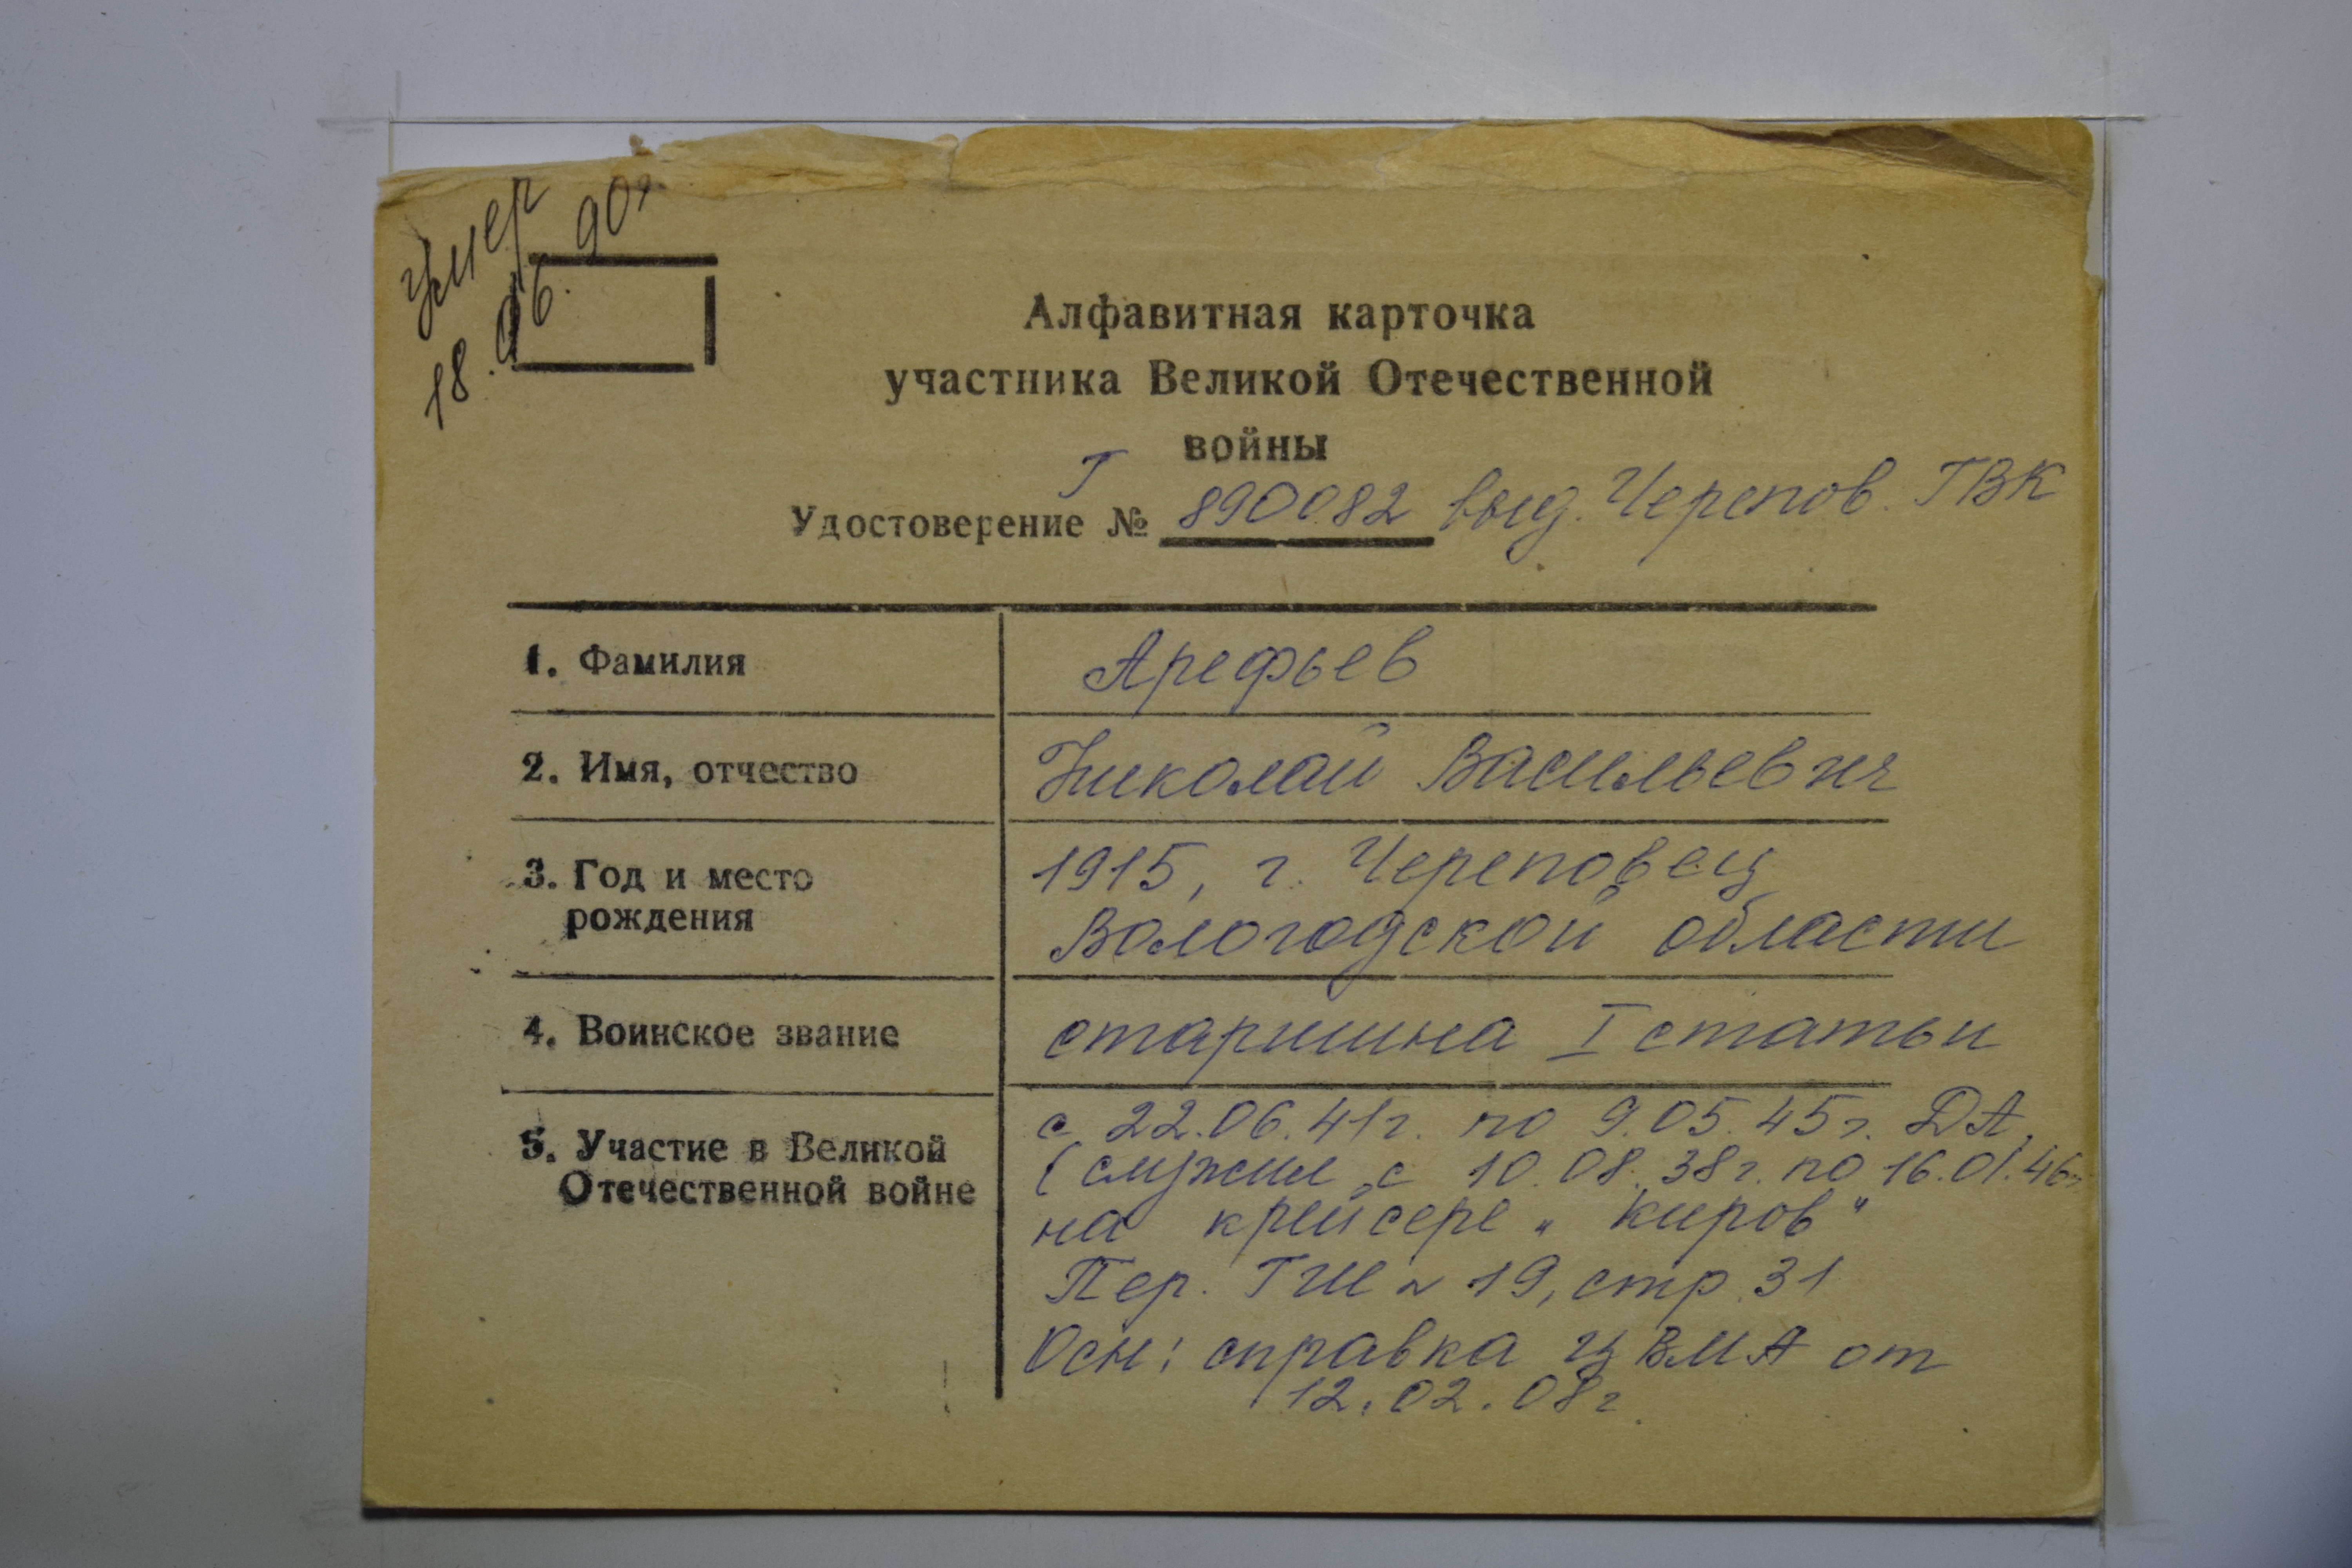 умер
18.06.90г.
Алфавитная карточка
участника Великой Отечественной
войны
Удостоверение № Г 890082 выд. Черепов. ГВК
1. Фамилия Арефьев
2. Имя, отчество Николай Васильевич
3. Год и место 1915, г. Череповец
рождения Вологодской области
4. Воинское звание старшина I статьи
5. Участие в Великой с 22.06.41г. по 9.05.45г. ДА,
Отечественной войне (служил с 10.08.38г. по 16.01.46г
на крейсере „Киров"
Пер. ГШ № 19, стр. 31
Осн: справка ЦВМА от
12.02.08г.